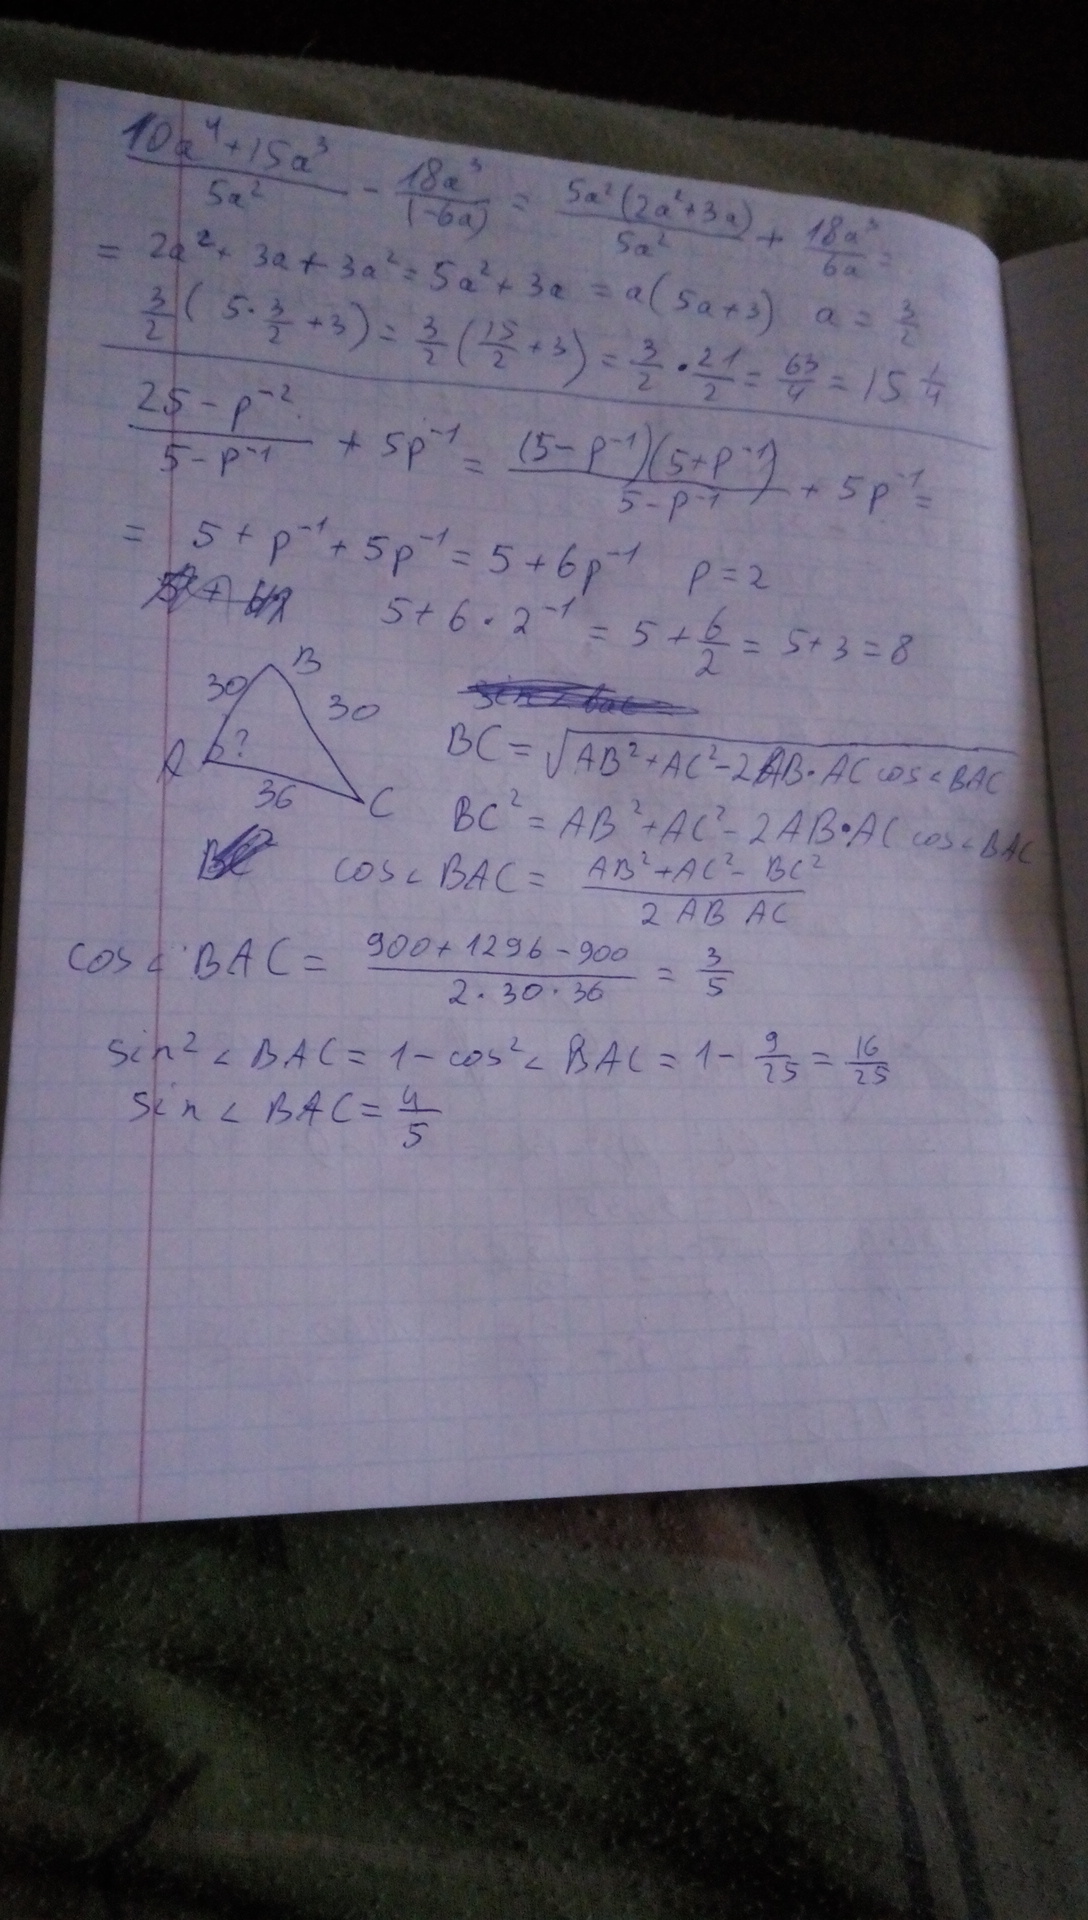 (10a⁴+15a³)/(5a²) - (18a³)/((-6a)) = (5a²(2a²+3a))/(5a²) + (18a³)/(6a) =
= 2a² + 3a + 3a² = 5a² + 3a = a(5a+3) a = 3/2
3/2 ( 5·3/2 + 3) = 3/2 (15/2 + 3) = 3/2 · 21/2 = 63/4 = 15 1/4
(25 - p⁻²)/(5 - p⁻¹) + 5p⁻¹ = ((5-p⁻¹)(5+p⁻¹))/(5-p⁻¹) + 5p⁻¹ =
= 5 + p⁻¹ + 5p⁻¹ = 5 + 6p⁻¹ p = 2
5 + 6 · 2⁻¹ = 5 + 6/2 = 5+3 = 8
B
30
30
A
?
36
C
BC = √(AB² + AC² - 2AB·AC cos < BAC)
BC² = AB² + AC² - 2AB·AC cos < BAC
cos < BAC = (AB² + AC² - BC²)/(2 AB AC)
cos < BAC = (900 + 1296 - 900)/(2·30·36) = 3/5
sin² < BAC = 1 - cos² < BAC = 1 - 9/25 = 16/25
sin < BAC = 4/5